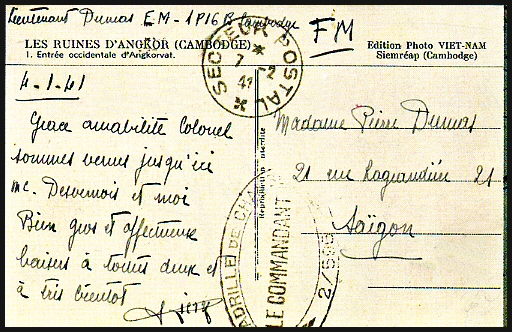 Lieutenant Dumas E.M - 1P16B Cambodge
FM
LES RUINES D'ANGKOR (CAMBODGE)
1. Entrée occidentale d'Angkorvat.
Edition Photo VIET-NAM
Siemréap (Cambodge)
SECTEUR POSTAL
7 -2
41
4-1-41
Grace amabilité Colonel
sommes venus jusqu'ici
Mc. Desvernois et moi
Bien gros et affectueux
baisers à toutes deux et
à très bientôt
Reproduction interdite
Madame Pierre Dumas
21 rue Lagrandière 21
Saïgon
LE COMMANDANT